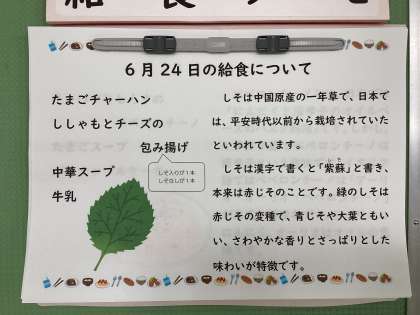 6月24日の給食について
たまごチャーハン
ししゃもとチーズの
包み揚げ
しそ入りが1本
しそなしが1本
中華スープ
牛乳
しそは中国原産の一年草で、日本で
は、平安時代以前から栽培されていた
といわれています。
しそは漢字で書くと「紫蘇」と書き、
本来は赤じそのことです。緑のしそは
赤じその変種で、青じそや大葉ともい
い、さわやかな香りとさっぱりとした
味わいが特徴です。